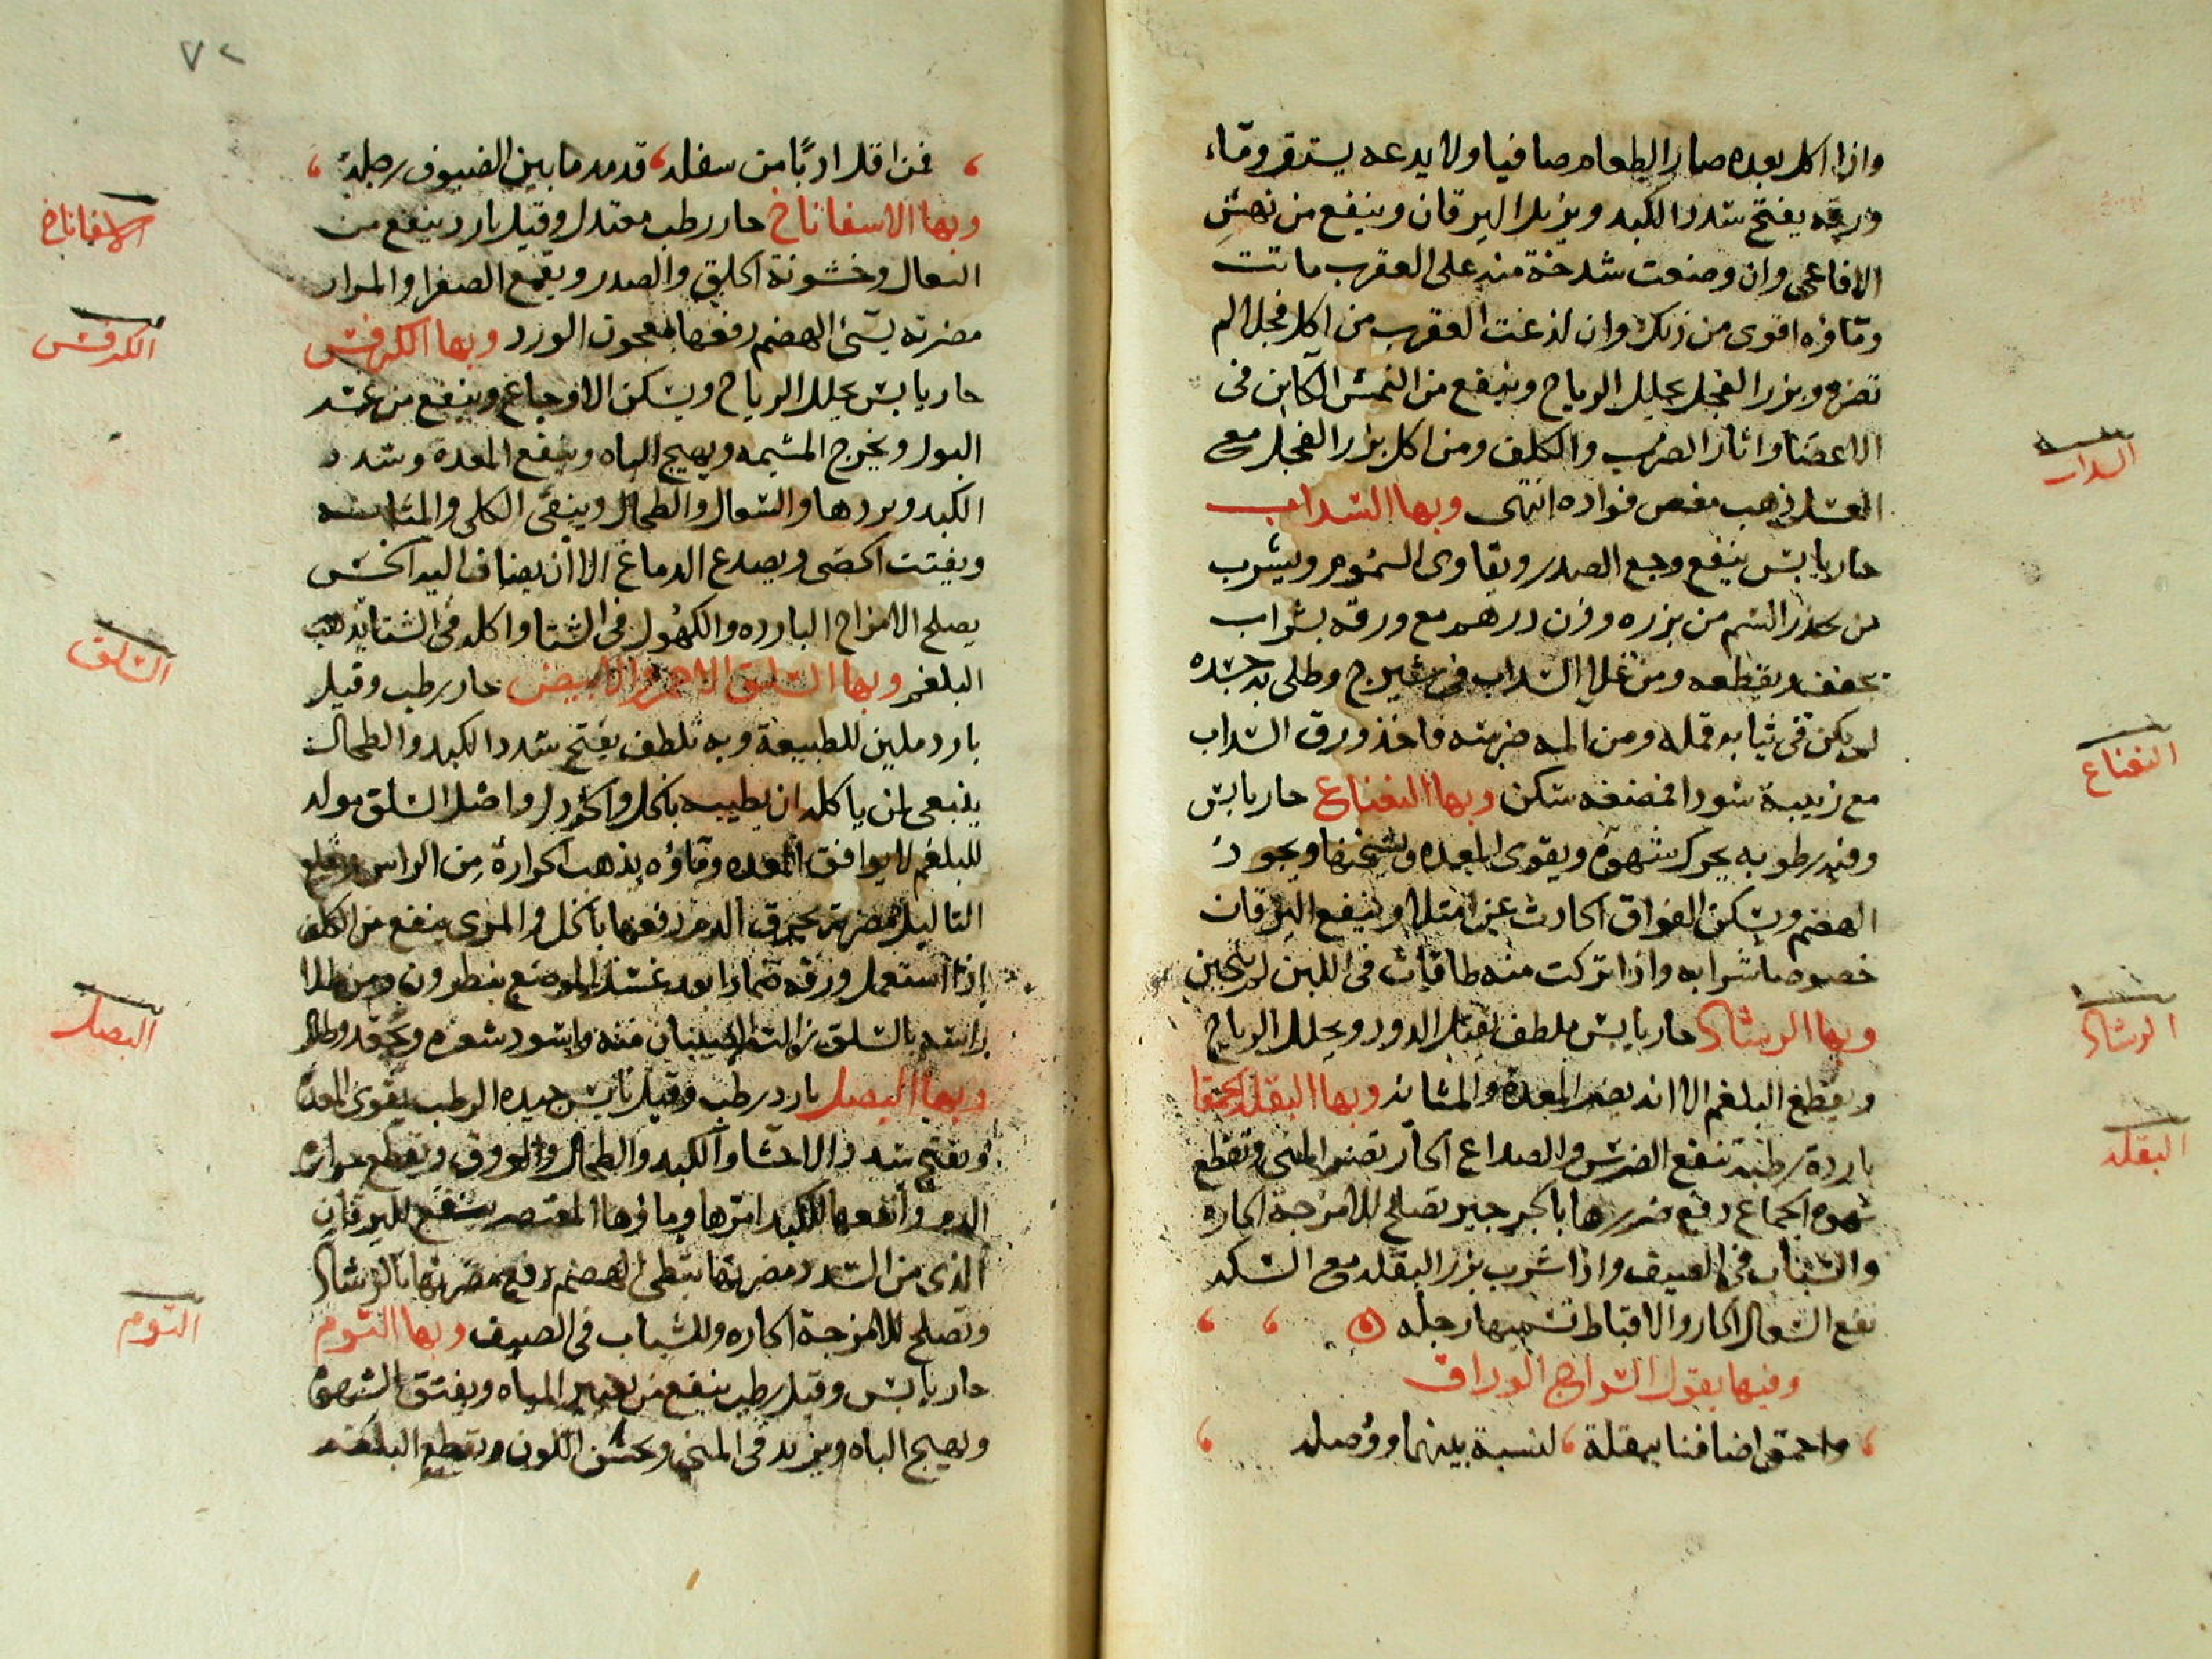 واذا اكل بعده صار الطعام صافيا ولا يدعه يستقر وماء
ورقه يفتح سدد الكبد ويزيل اليرقان وينفع من نهش
الافاعى وان وضعت شدخة منه على العقرب ماتت
وماؤه اقوى من ذلك وان لدغت العقرب من اكل فجلا لم
تضره وبزر الفجل يحلل الرياح وينفع من النمش الكاين فى
الاعضا واثار الضرب والكلف ومن اكل بزر الفجل مع
العسل ذهب مغص فواده انتهى وبها السداب
السداب
حار يابس ينفع وجع الصدر ويقاوى السموم ويشرب
من يحذر السم من بزره وزن درهم مع ورقه بشراب
يجفف ويقطعه ومن غلى السداب فى شيرج وطلى به جسده
لم يكن فى ثيابه قمله ومن المه ضرسه فاخذ ورق السداب
مع زبيبة سودا فمضغه سكن وبها النعناع حار يابس
النعناع
وفيه رطوبه يحرك شهوة ويقوى المعده ويسخنها ويجود
الهضم ويسكن الفواق الحادث عن امتلا وينفع اليرقان
خصوصا شرابه واذا تركت منه طاقات فى اللبن لم يتجبن
وبها الرشاد حار يابس ملطف يقتل الدود ويحلل الرياح
الرشاد
ويقطع البلغم الا انه يضر المعدة والمثانه وبها البقله الحمقا
البقله
باردة رطبة تنفع الضرس والصداع الحار تضر المنى وتقطع
شهوة الجماع دفع ضررها بالجرجير تصلح للامزجة الحاره
والشباب فى الصيف واذا شرب بزر البقله مع السكر
نفع السعال الحار والاقباط تسميها رجله
وفيها يقول السراج الوراق
واحمق اضافنا ببقلة لنسبة بينهما ووصله
٧٢
فمن اقل ادبا من سفله قد مد ما بين الضيوف رجله
وبها الاسفاناخ حار رطب معتدل وقيل بارد ينفع من
الاسفاناخ
السعال وخشونة الحلق والصدر ويقمع الصفرا والمرار
مضرته يسئ الهضم دفعها بمعجون الورد وبها الكرفس
الكرفس
حار يابس يحلل الرياح ويسكن الاوجاع وينفع من عسر
البول ويخرج المشيمه ويهيج الباه وينفع المعدة وسدد
الكبد وبردها والسعال والطحال وينقى الكلى والمثانه
ويفتت الحصى ويصدع الدماغ الا ان يضاف اليه الخس
يصلح الامزاج البارده والكهول فى الشتا واكله فى الشتا يذهب
البلغم وبها السلق الاحمر والابيض حار رطب وقيل
السلق
بارد ملين للطبيعة وبه تلطف يفتح سدد الكبد والطحال
ينبغى لمن ياكله ان يطيبه بالخل والخردل واصل السلق مولد
للبلغم لا يوافق المعده وماؤه يذهب الحرارة من الراس ويقلع
التاليل مضرته يحرق الدم دفعها بالخل والمرى ينفع من الكلف
اذا استعمل ورقه ضمادا بعد غسل الموضع بنطرون ومن طلا
راسه بالسلق زالت الصيبان منه واسود شعره وتجعد وطال
وبها البصل بارد رطب وقيل يابس جيده الرطب يقوى المعدة
البصل
ويفتح سدد الاحشا والكبد والطحال والعروق ويقطع حرارة
الدم وانفعها للكبد امرها وماؤها المعتصر ينفع لليرقان
الذى من السدد مضرتها تبطى الهضم دفع مضرتها بالرشاد
وتصلح للامزجة الحاره وللشباب فى الصيف وبها الثوم
الثوم
حار يابس وقيل رطب ينفع من تغيير المياه ويفتق الشهوة
ويهيج الباه ويزيد فى المنى ويحسن اللون ويقطع البلغم